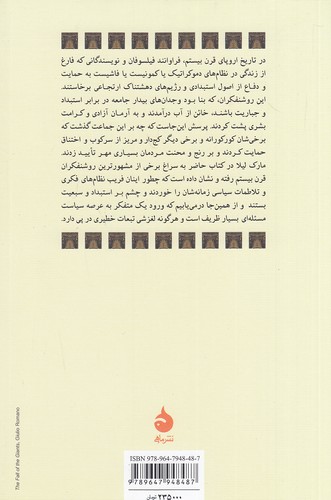 در تاریخ اروپای قرن بیستم، فراوانند فیلسوفان و نویسندگانی که فارغ
از زندگی در نظام‌های دموکراتیک یا کمونیست یا فاشیست به حمایت
و دفاع از اصول استبدادی و رژیم‌های دهشتناک ارتجاعی برخاستند
این روشنفکران، که بنا بود وجدان‌های بیدار جامعه در برابر استبداد
و جباریت باشند، خائن از آب درآمدند و به آرمان آزادی و کرامت
بشری پشت کردند. پرسش این‌جاست که چه بر این جماعت گذشت که
برخی‌شان کورکورانه و برخی دیگر کج‌دار و مریز از سرکوب و اختناق
حمایت کردند و بر رنج و محنت مردمان بسیاری مهر تأیید زدند.
مارک لیلا در کتاب حاضر به سراغ برخی از مشهورترین روشنفکران
قرن بیستم رفته و نشان داده است که چطور اینان فریب نظام‌های فکری
و تلاطمات سیاسی زمانه‌شان را خوردند و چشم بر استبداد و سبعیت
بستند و از همین‌جا درمی‌یابیم که ورود یک متفکر به عرصه سیاست
مسئله‌ای بسیار ظریف است و هرگونه لغزشی تبعات خطیری در پی دارد.
The Fall of the Giants, Giulio Romano
نشر ماهی
ISBN 978-964-7948-48-7
9 789647 948487
۲۳۵۰۰۰ تومان